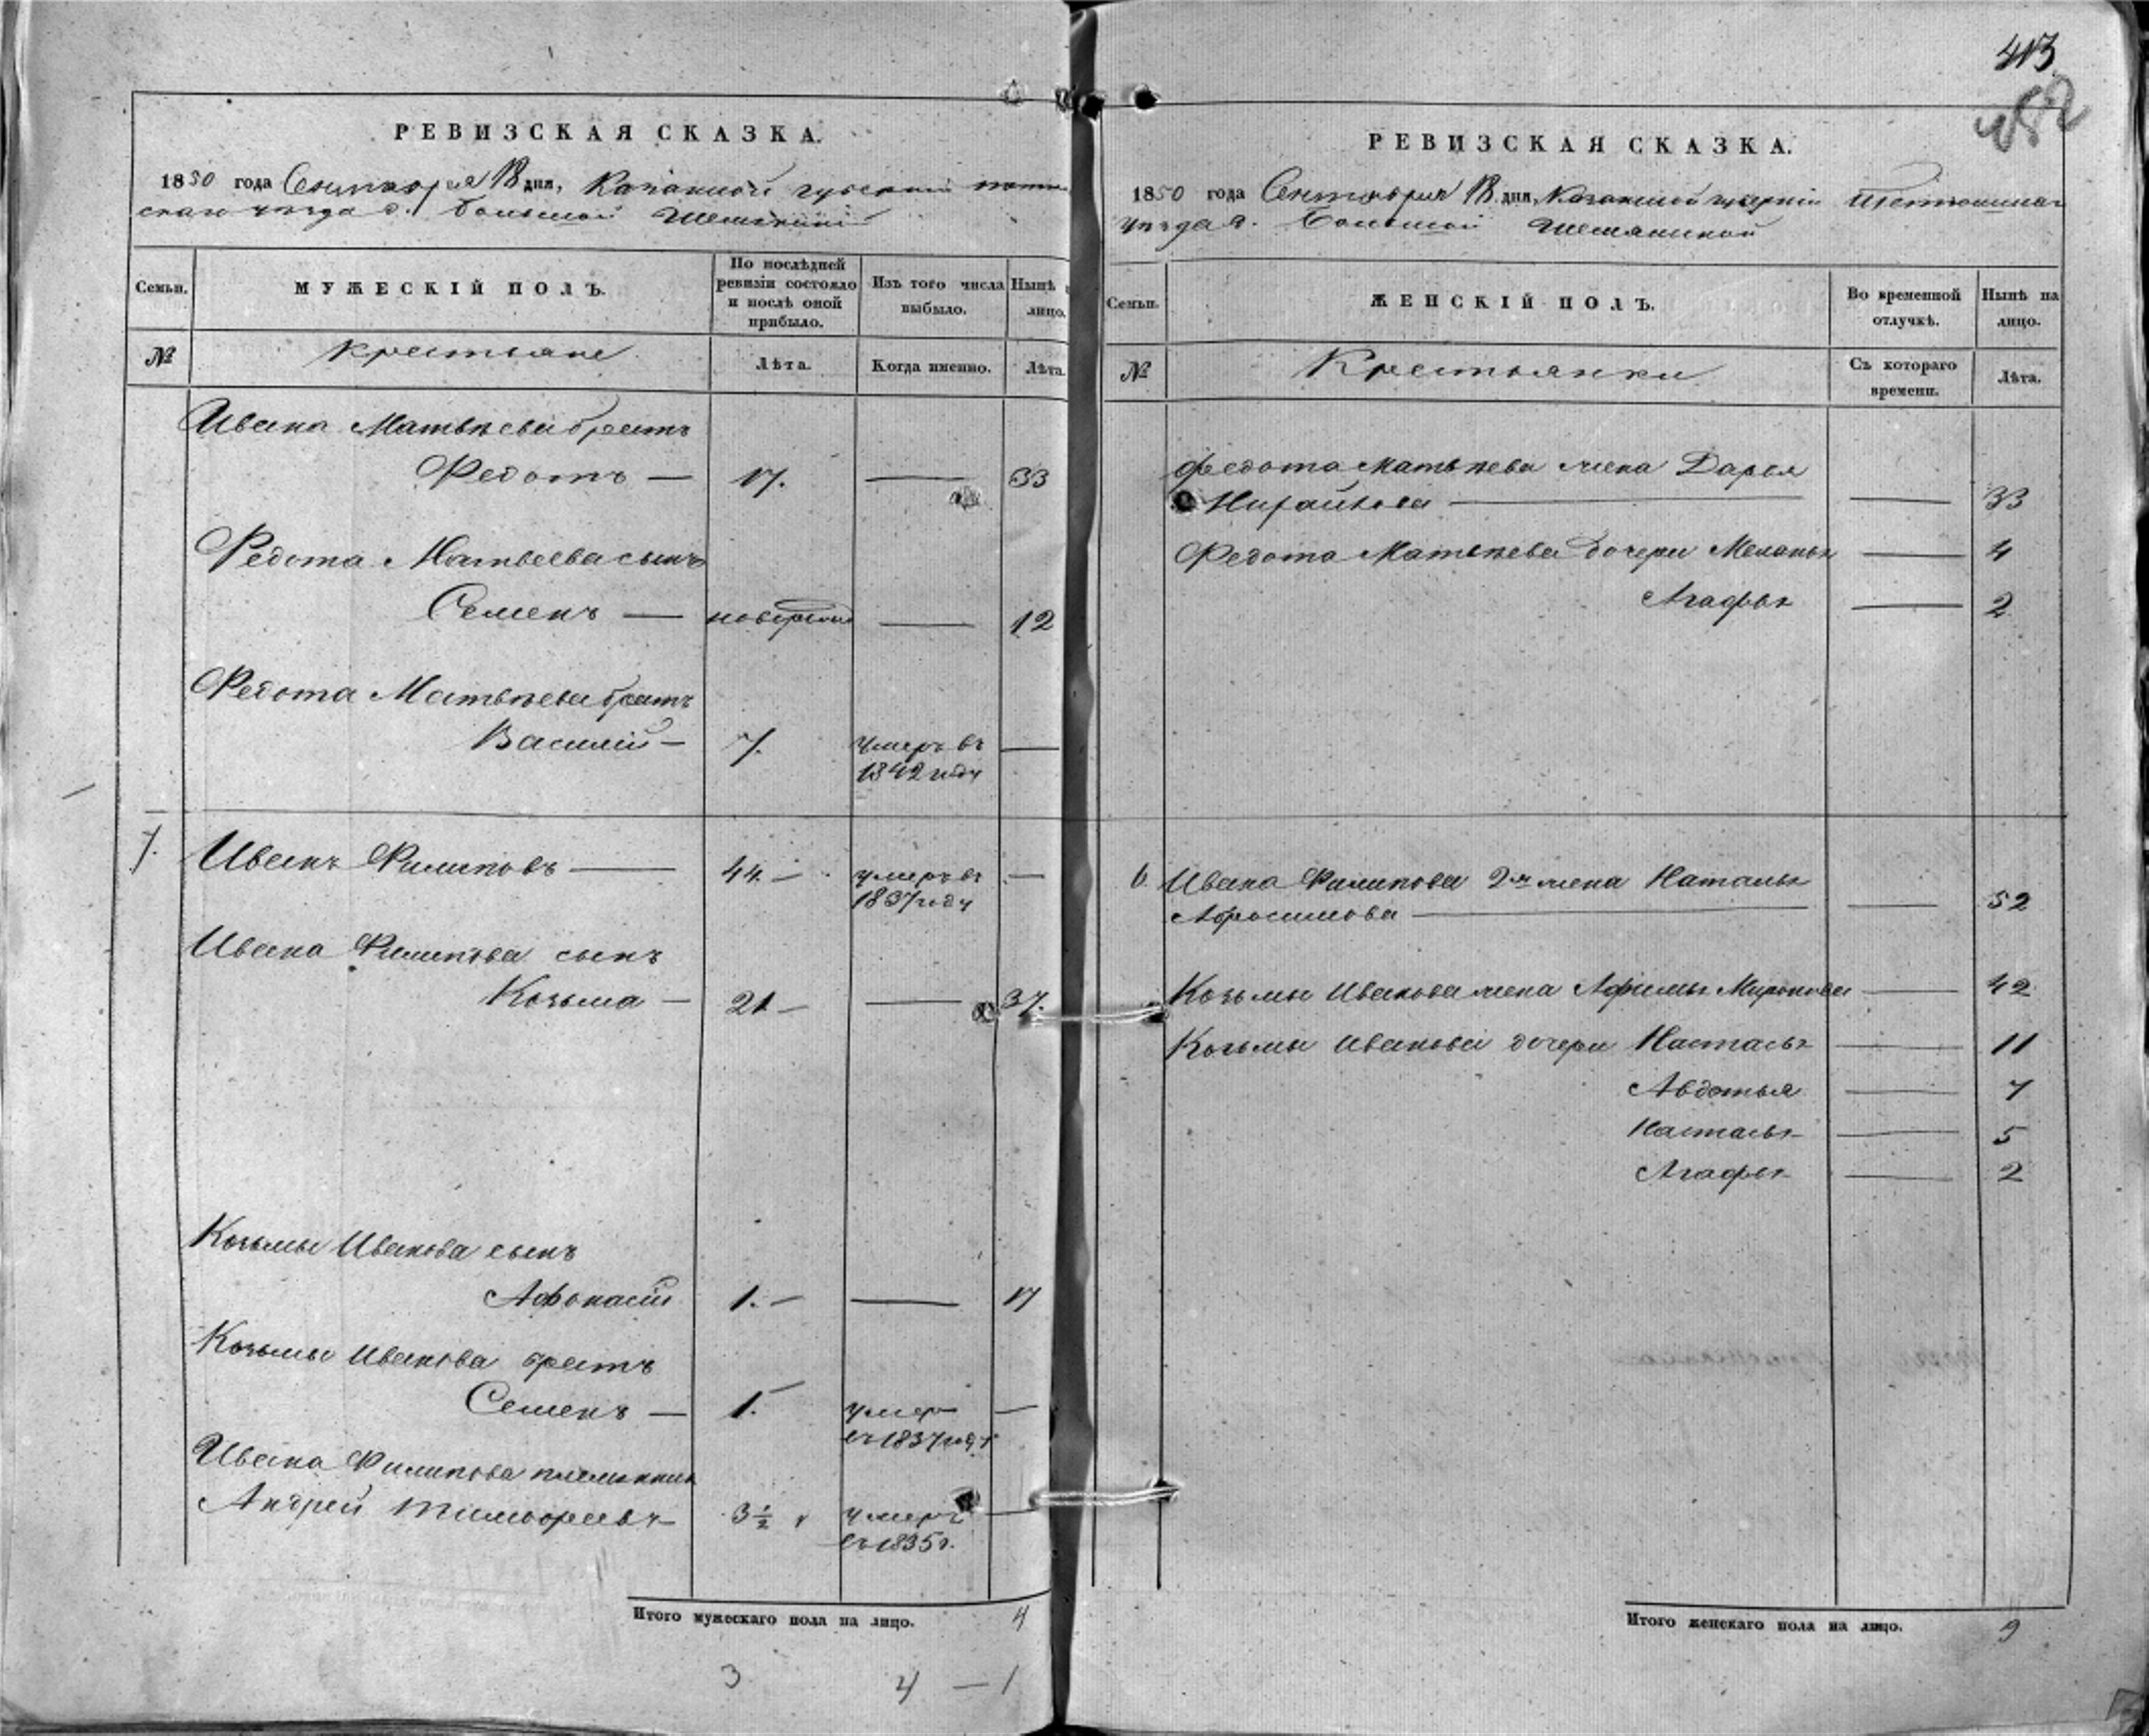 413
482
РЕВИЗСКАЯ СКАЗКА.
1850 года Сентября 18 дня, Казанской губернии
уѣзда д. Большой
Семьи.
МУЖЕСКІЙ ПОЛЪ.
По послѣдней ревизіи состояло и послѣ оной прибыло.
Изъ того числа выбыло.
Нынѣ лицо.
№
крестьяне
Лѣта.
Когда именно.
Лѣта.
Ивана Матвѣева братъ
Федотъ — 17. — 33
Федота Матвеева сынъ
Семенъ — — 12
Федота Матвѣева братъ
Василий — 7. умеръ въ —
1842 году
7. Иванъ Филиповъ — 44. — умеръ въ —
1837 году
Ивана Филипова сынъ
Козьма — 21 — — 37.
Козьмы Иванова сынъ
Афонасий 1. — — 17
Козьмы Иванова братъ
Семенъ — 1. умер —
въ 1837 году
Ивана Филипова племянник
Андрей Тимофеевъ 3 1/2 умеръ —
въ 1835 г.
Итого мужескаго пола на лицо. 4
3 4 — 1
РЕВИЗСКАЯ СКАЗКА.
1850 года Сентября 18 дня, Казанской губерніи
уѣзда д. Большой
Семьи.
ЖЕНСКІЙ ПОЛЪ.
Во временной отлучкѣ.
Нынѣ на лицо.
№
Крестьянки
Съ котораго времени.
Лѣта.
Федота Матвѣева жена Дарья
— — 33
Федота Матвѣева дочери Меланья — 4
Агафья — 2
6. Ивана Филипова 2я жена Наталья
Афросимова — — 52
Козьмы Иванова жена Афимья Миронова — 42
Козьмы Иванова дочери Настасья — 11
Авдотья — 7
Настасья — 5
Агафья — 2
Итого женскаго пола на лицо. 9